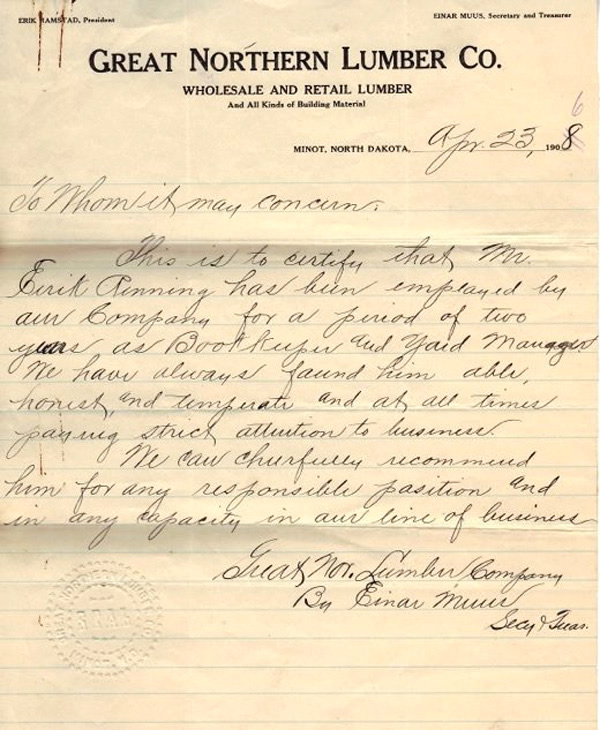 ERIK RAMSTAD, President
EINAR MUUS, Secretary and Treasurer
GREAT NORTHERN LUMBER CO.
WHOLESALE AND RETAIL LUMBER
And All Kinds of Building Material
6
MINOT, NORTH DAKOTA, Apr. 23, 1908
To Whom it may concern:
This is to certify that Mr.
Eirik Renning has been employed by
our Company for a period of two
years as Bookkeeper and Yard Manager.
We have always found him able,
honest, and temperate and at all times
paying strict attention to business.
We can cheerfully recommend
him for any responsible position and
in any capacity in our line of business
Great Nor. Lumber Company
By Einar Muus
Secy & Treas.
GREAT NORTHERN LUMBER CO.
SEAL
MINOT, N.D.